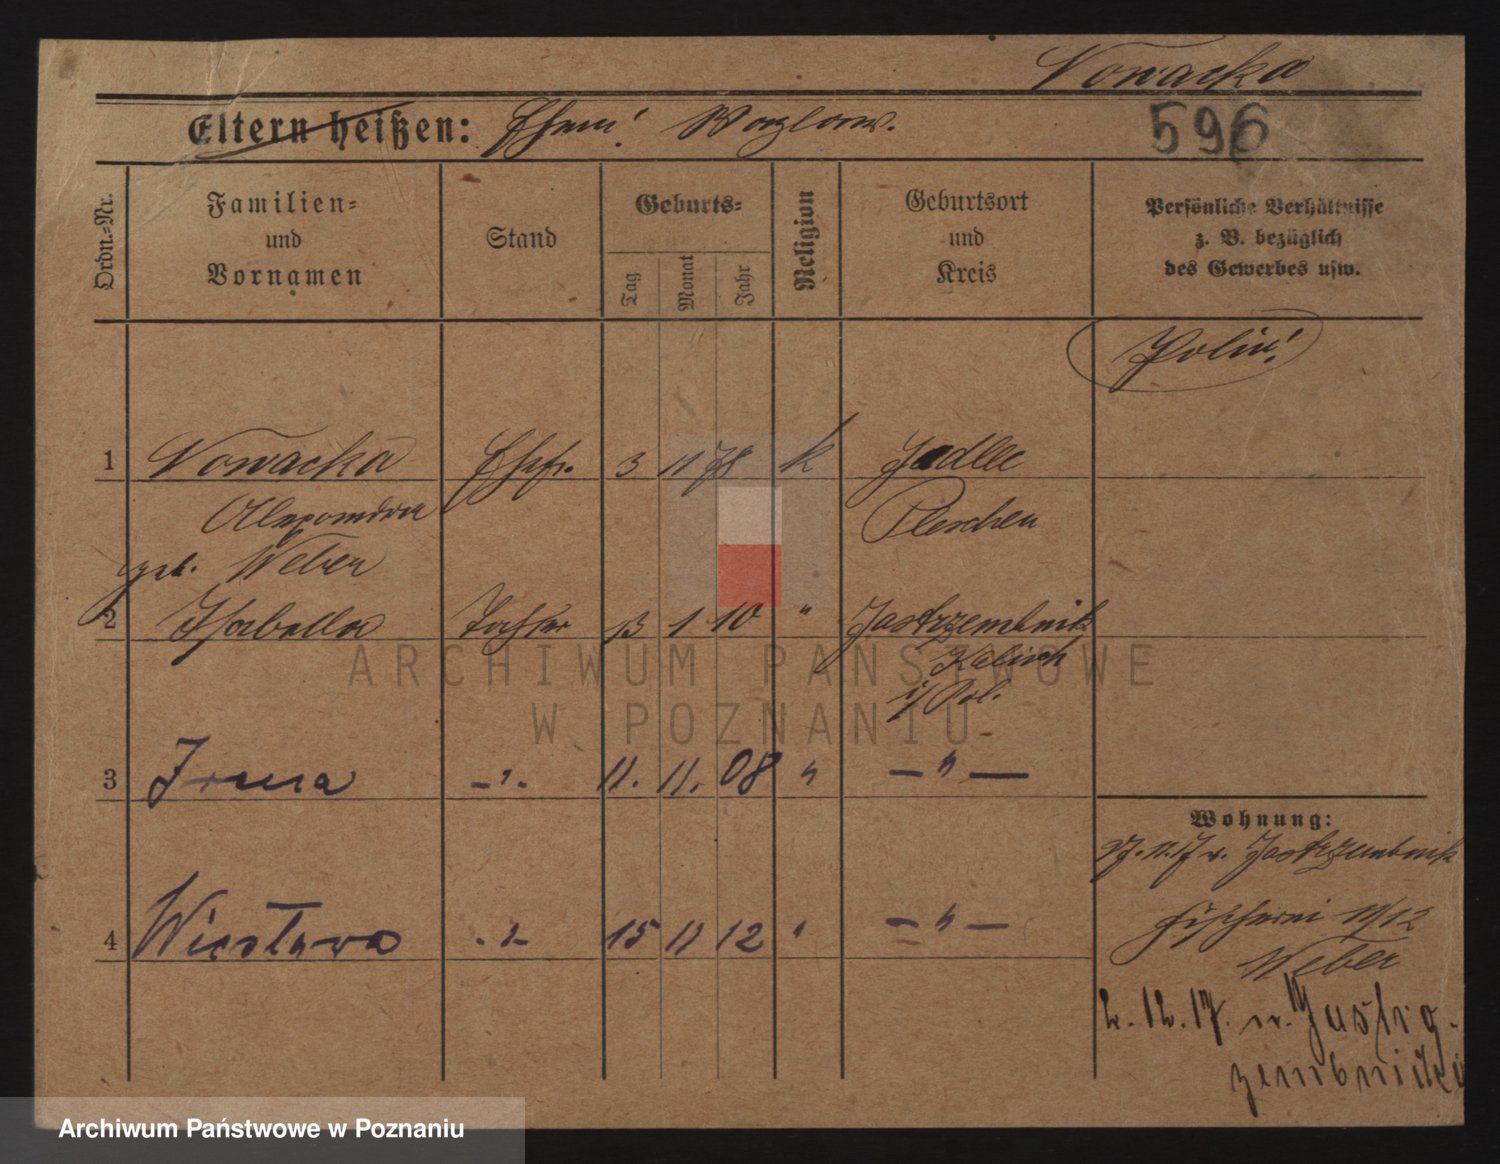 Nowacka
Eltern heißen: Ehem! Wazlaw.
596
Ordn.-Nr.
Familien-
und
Vornamen
Stand
Geburts-
Tag
Monat
Jahr
Religion
Geburtsort
und
Kreis
Persönliche Verhältnisse
z. B. bezüglich
des Gewerbes usw.
Polin!
1 Nowacka Ehefr. 3 11 78 k Jedlec
Alexandra Pleschen
geb. Weber
2 Isabella Tochter 13 1 10 " Jastrzembnik
Kalisch
i/ Pol.
3 Irena -"- 11. 11. 08 " -"-
Wohnung:
27.11.17 v. Jastrzembnik
4 Wiesława -"- 15 11 12 " -"-
Fischerei 11/12
Weber
2. 12. 17. n. Jastrg-
zembnicki
ARCHIWUM PAŃSTWOWE
W POZNANIU
Archiwum Państwowe w Poznaniu